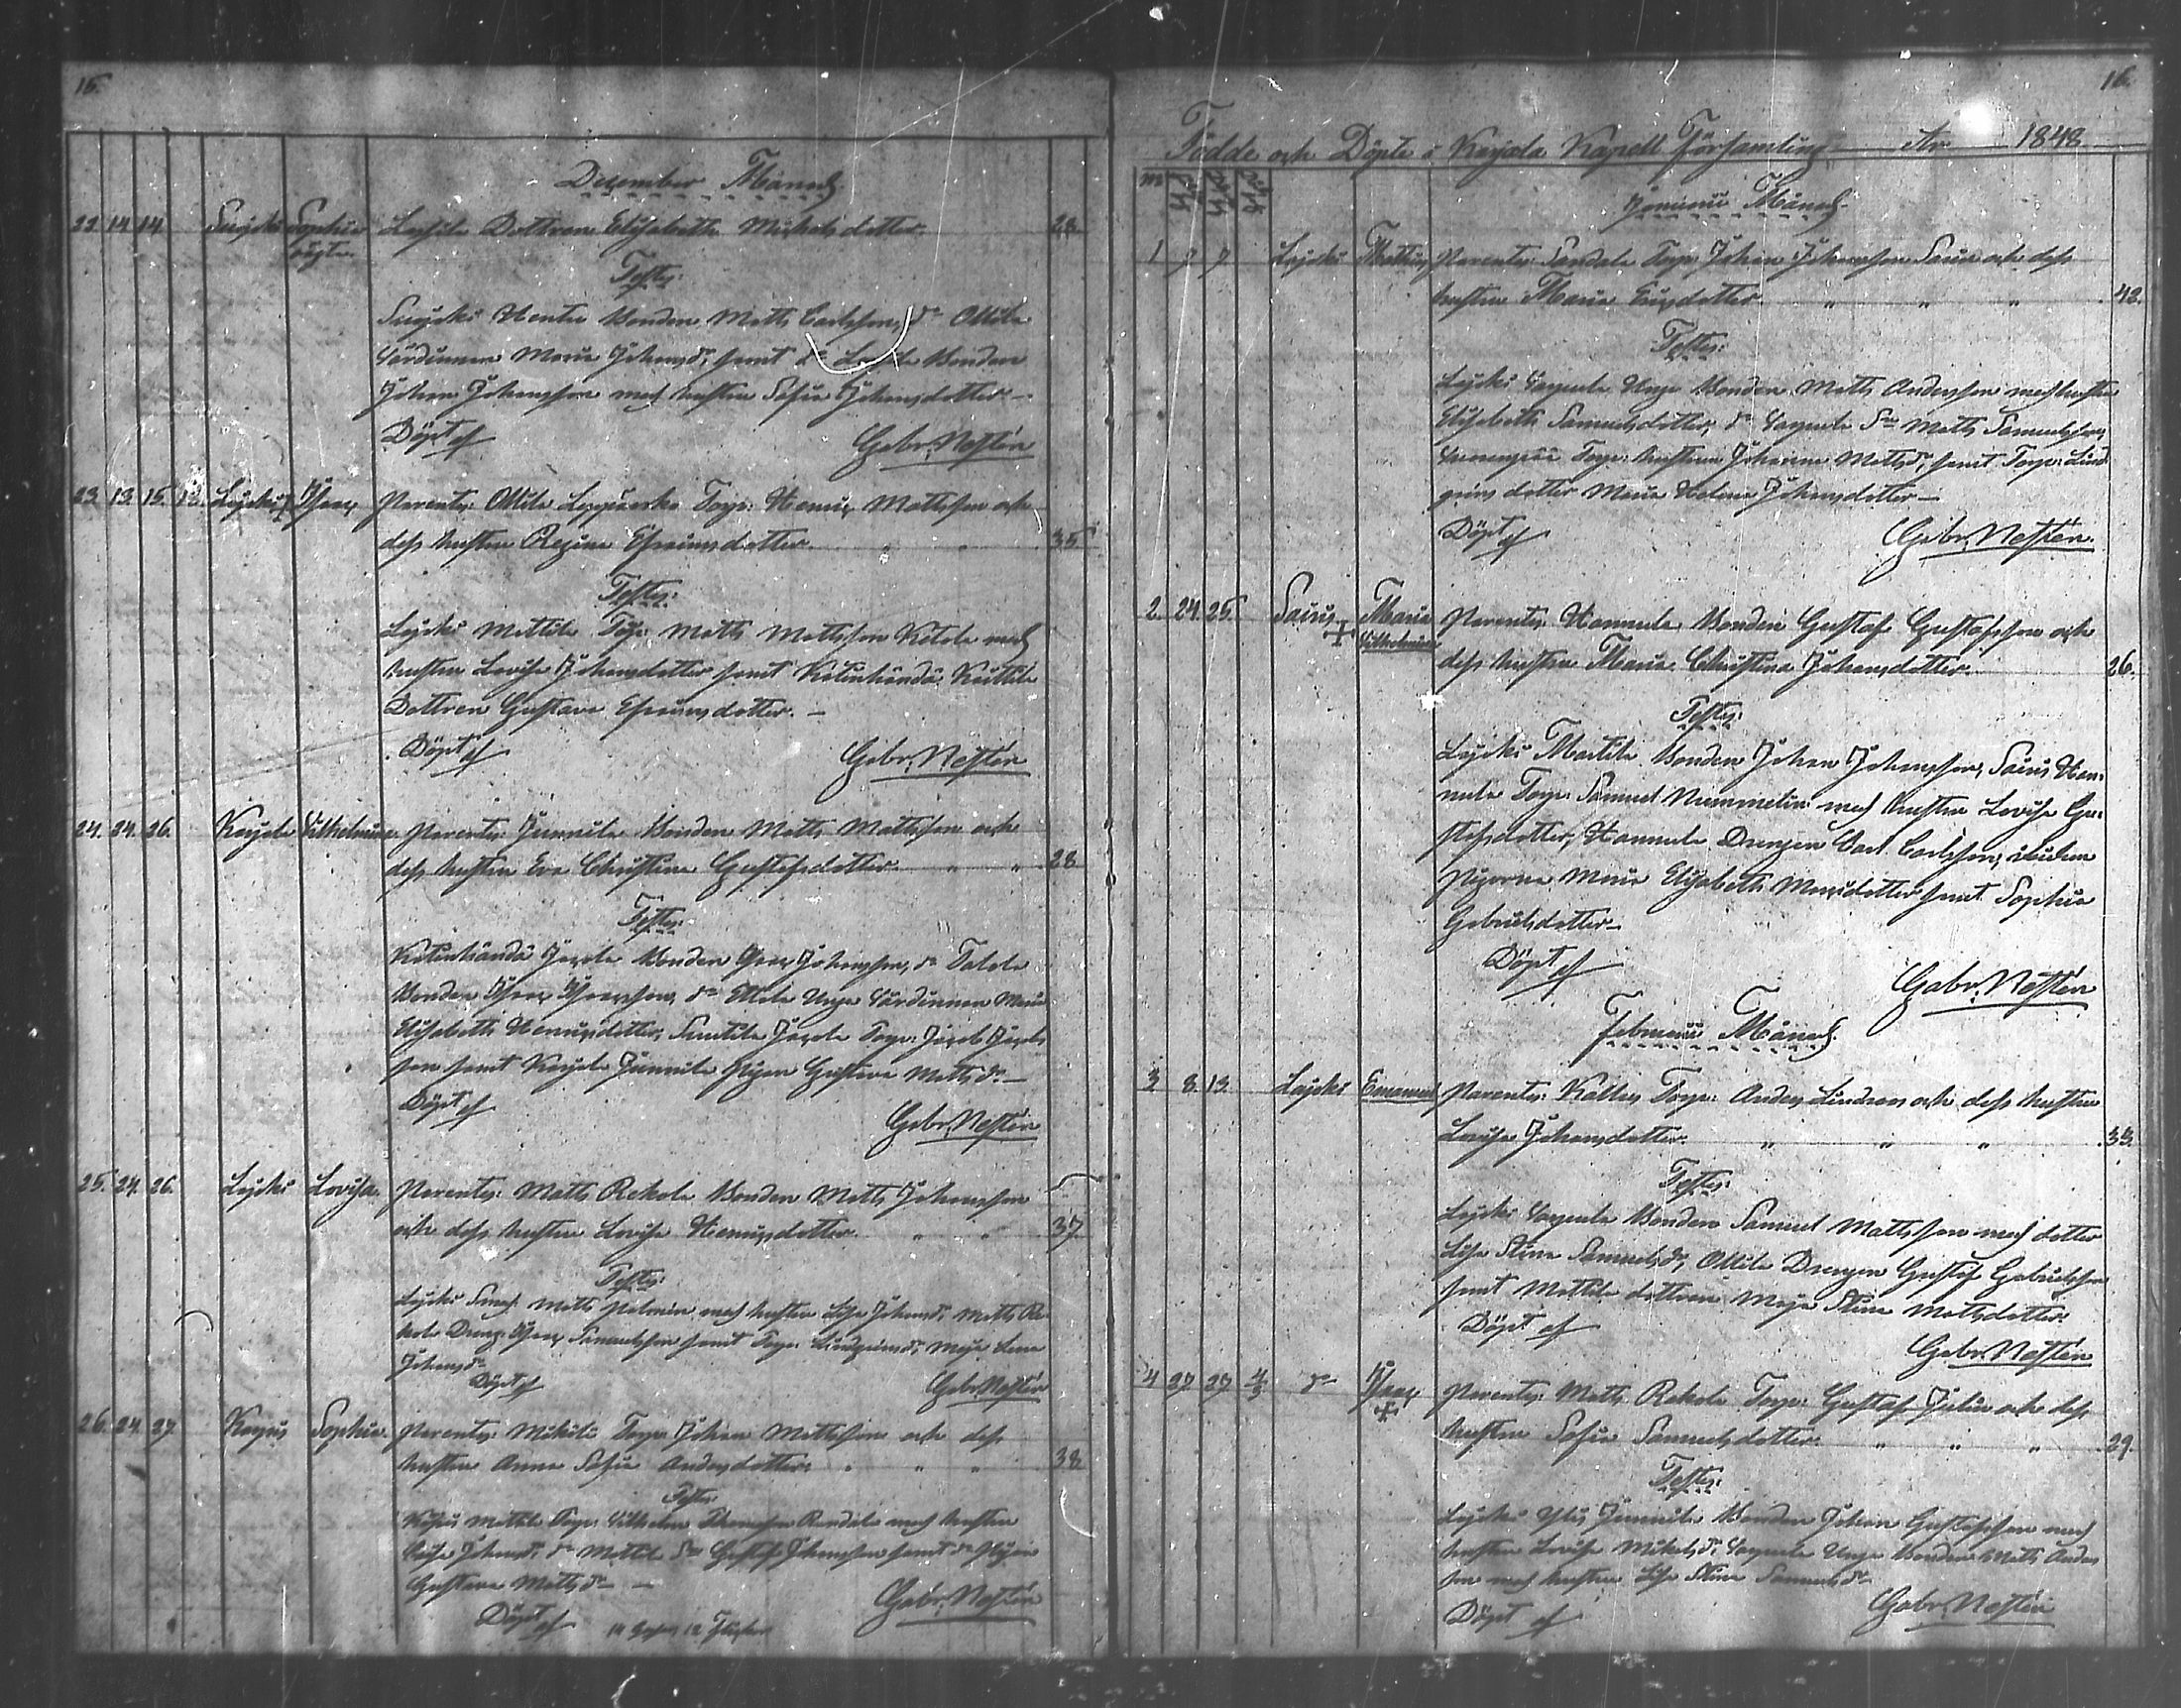 15.
December Månad.
22. 14. 14. Suojoki Sophia Laisila Dottren Elisabetha Michelsdotter. 28.
oägta.
Testes:
Suojoki Bonden Matts Carlsson, do Ollila
Värdinnan Maria Johansdr, samt do Laisila Bonden
Johan Johansson med hustru Sofia Johansdotter.
Döpt af Gabr. Nestén
23. 13. 15. 18. Isaac Parentes: Ollila Torp. Henric Mattsson och
dess hustru Regina Efraimsdotter. 35
Testes:
Mattila Torp. Matts Mattsson Ketola med
hustru Lovisa Johansdotter samt Kolinhändä Knittilä
Dottren Gustava Efraimsdotter.
Döpt af Gabr. Nestén
24. 24. 26. Karjala Vilhelmina Parentes: Junnila Bonden Matts Mattsson och
dess hustru Eva Christina Gustafsdotter. " " 28
Testes:
Bonden Isac Johansson, do Talola
Bonden Isac Isacsson, do Unga Värdinnan Maria
Elisabeth Henricsdotter, Torp. Jacob Jacobs
son samt Karjala Junnila Pigan Gustava Mattsdr.
Döpt af Gabr. Nestén
25. 24. 26. Lovisa. Parentes: Matts Rekola Bonden Matts Johansson
och dess hustru Lovisa Henricsdotter. " " 37
Testes:
Matts Palmén med hustru Lisa Johansdr, Matts Re-
kola Dreng Isac Samuelsson samt Torp. Lindgrens dr. Maja Lena
Johansdr
Döpt af Gabr. Nestén
26. 24. 27. Sophia. Parentes: Mikkilä Torp. Johan Mattsson och dess
hustru Anna Sofia Andersdotter. " " 38
Testes:
Mattila Torp. Vilhelm Thomasson Randala med hustru
Lovisa Johansdr, do Mattila Son Gustaf Johansson samt do Pigan
Gustava Mattsdr
Döpt af Gabr. Nestén
14 Gossar 12 Flickor
16.
Födde och Döpte i Karjala Kapell Församling År 1848
No
Januarii Månad.
1 7 7 Mathias Parentes: Sandala Torp. Johan Johansson och dess
hustru Maria Ericsdotter " " " 42.
Testes:
Unga Bonden Matts Andersson med hustru
Elisabeth Samuelsdotter, do Son Matts Samuelsson,
Torp. hustrun Johanna Mattsdr, samt Torp. Lind
grens dotter Maria Helena Johansdotter
Döpt af Gabr. Nestén.
2. 24. 25. Maria Vilhelmina Parentes: Hannula Bonden Gustaf Gustafsson och
dess hustru Maria Christina Johansdotter. 26.
Testes:
Marttila Bonden Johan Johansson, Han-
nula Torp. Samuel Nummelin med hustru Lovisa Gu-
stafsdotter, Hannula Drengen Carl Carlsson,
Pigorna Maria Elisabeth Mattsdotter samt Sophia
Gabrielsdotter
Döpt af Gabr. Nestén
Februarii Månad.
3 8. 13. Emanuel Parentes: Torp. Anders Lindroos och dess hustru
Lovisa Johansdotter. " " " 33
Testes:
Bonden Samuel Mattsson med dotter
Lisa Stina Samuelsdr, Ollila Drengen Gustaf Gabrielsson
samt Mattila dottren Maja Stina Mattsdotter.
Döpt af Gabr. Nestén
4 27 27 4/3 do Isaac Parentes: Matts Rekola Torp. Gustaf Julin och dess
hustru Sofia Samuelsdotter. " " " 29.
Testes:
Junnila Bonden Johan Gustafsson med
hustru Lovisa Mikelsdr, Unga Bonden Matts Anders
son med hustru Lisa Stina Samuelsdr
Döpt af Gabr. Nestén